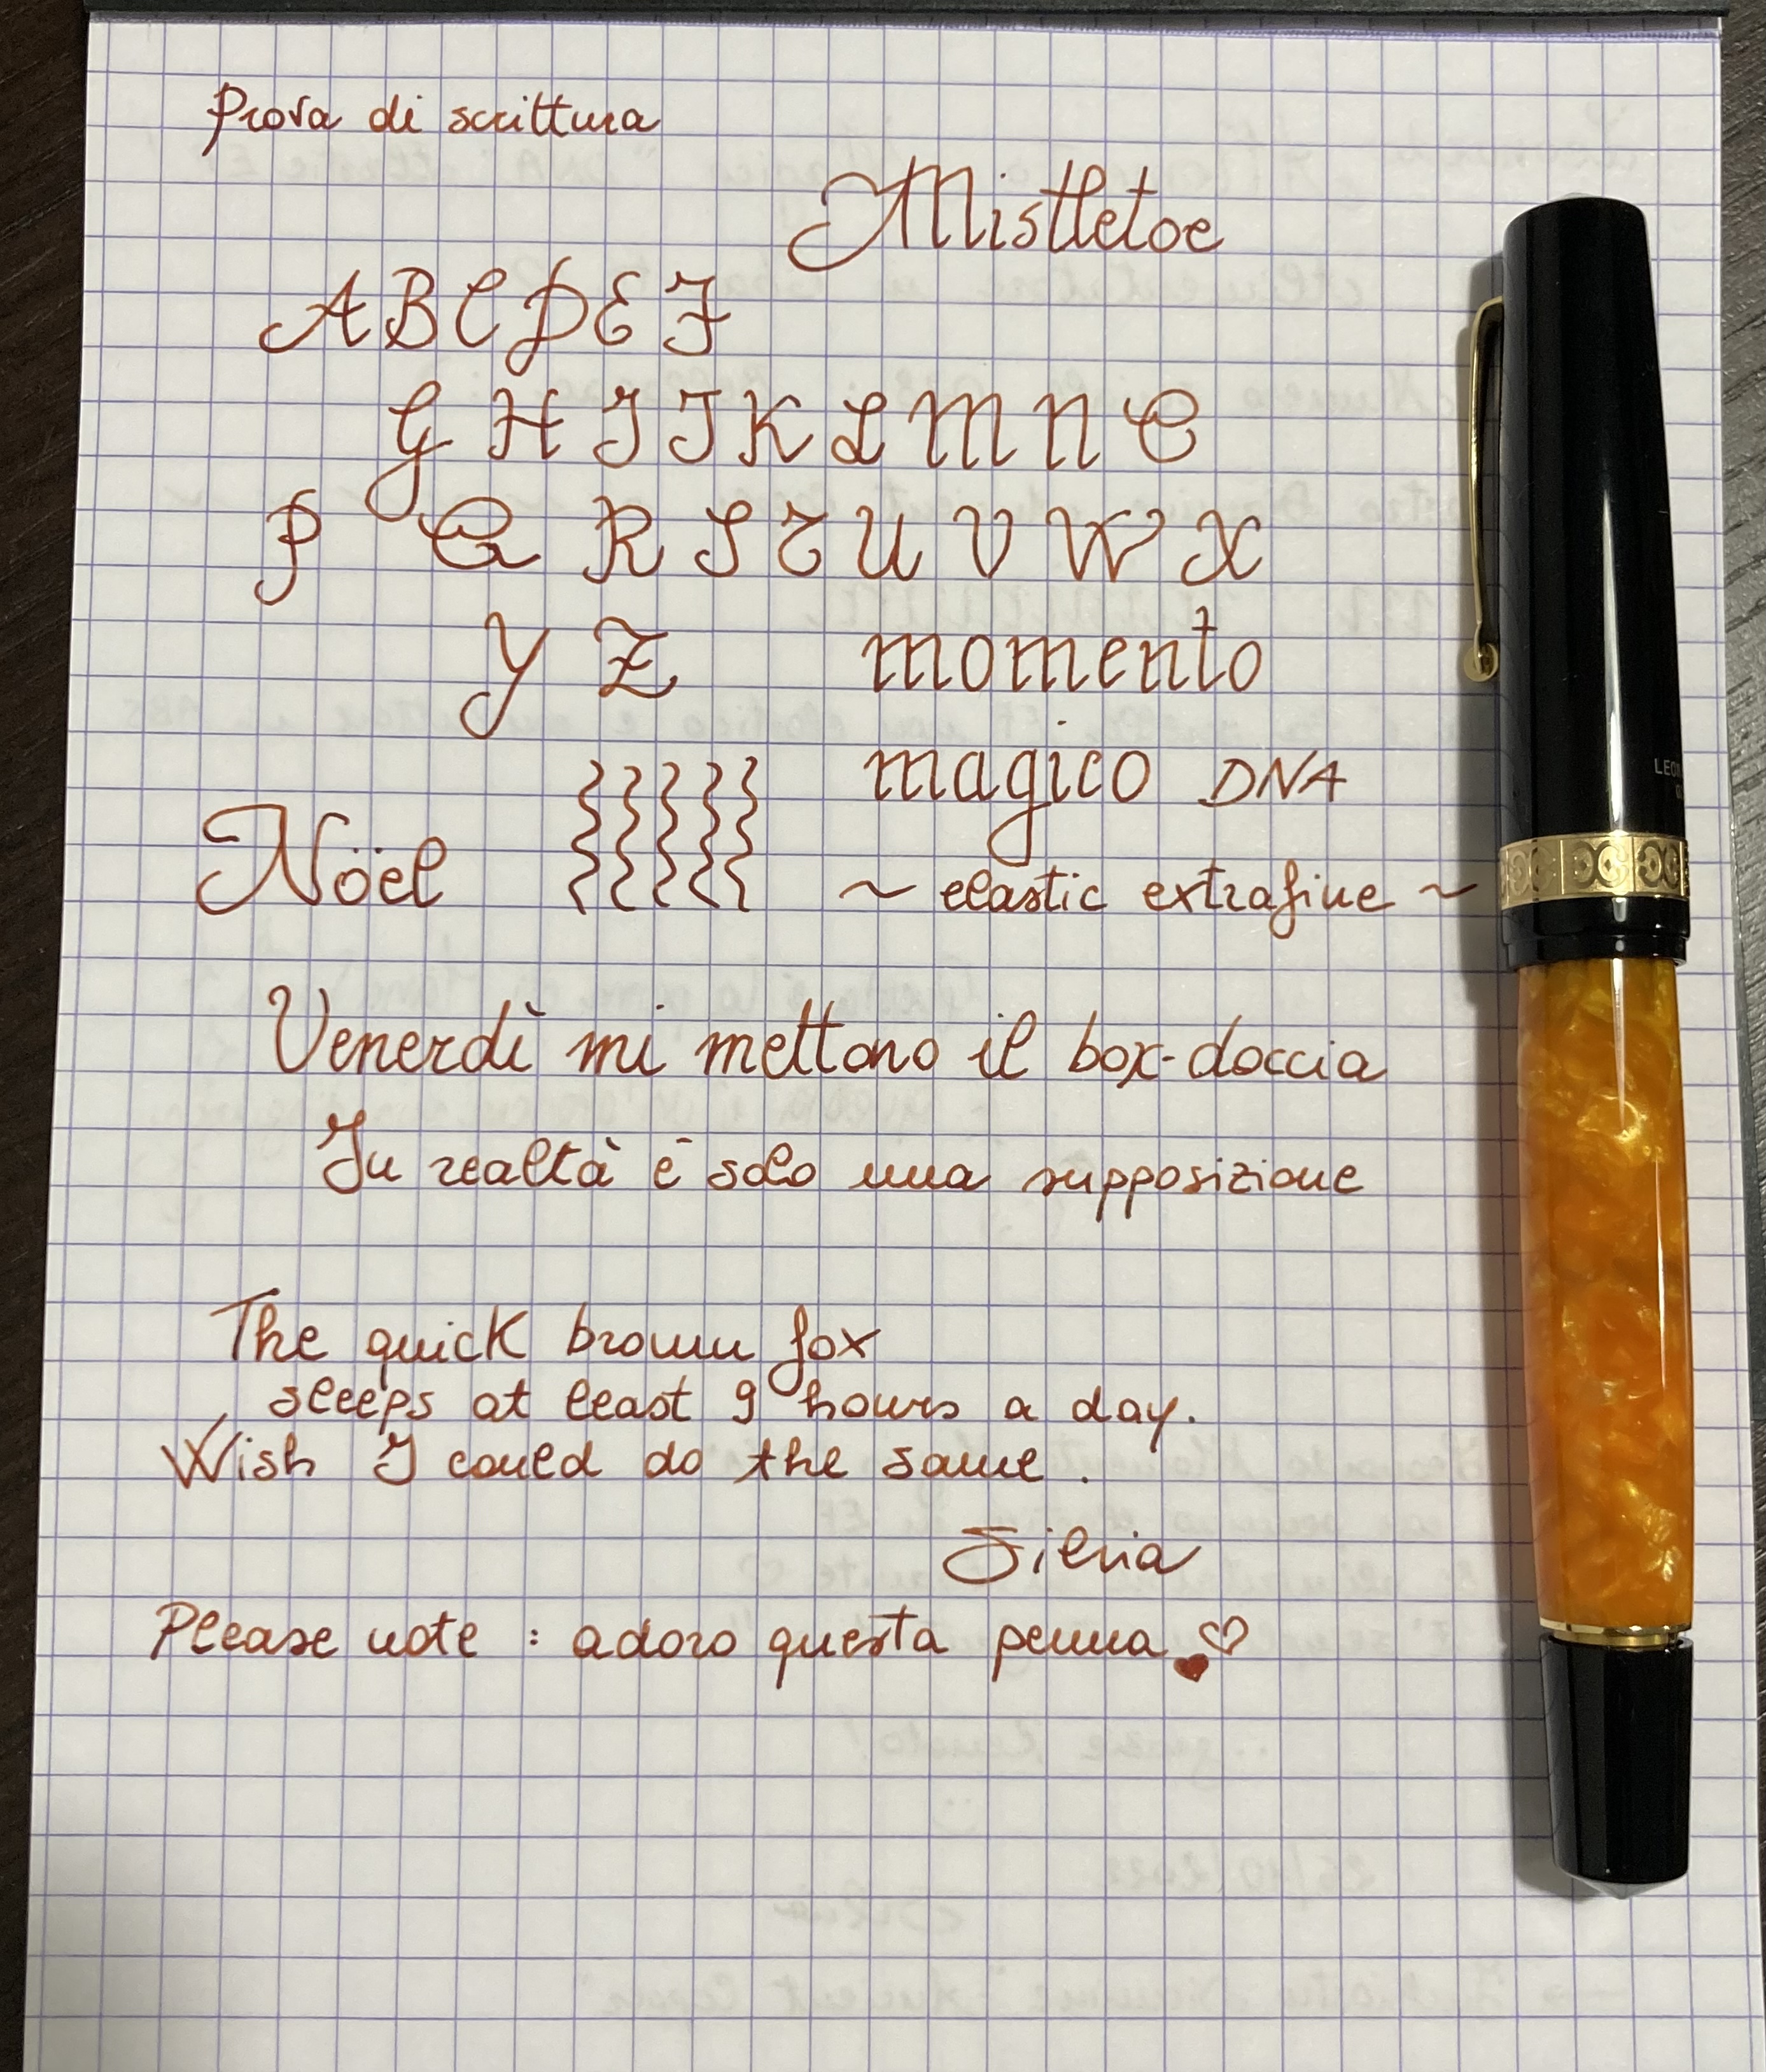 Prova di scrittura
Mistletoe
A B C D E F
G H I J K L M N O
P Q R S T U V W X
Y Z momento
magico DNA
Nöël ~ elastic extrafine ~
Venerdì mi mettono il box-doccia
In realtà è solo una supposizione
The quick brown fox
sleeps at least 9 hours a day.
Wish I could do the same.
Silvia
Please note : adoro questa penna ♡